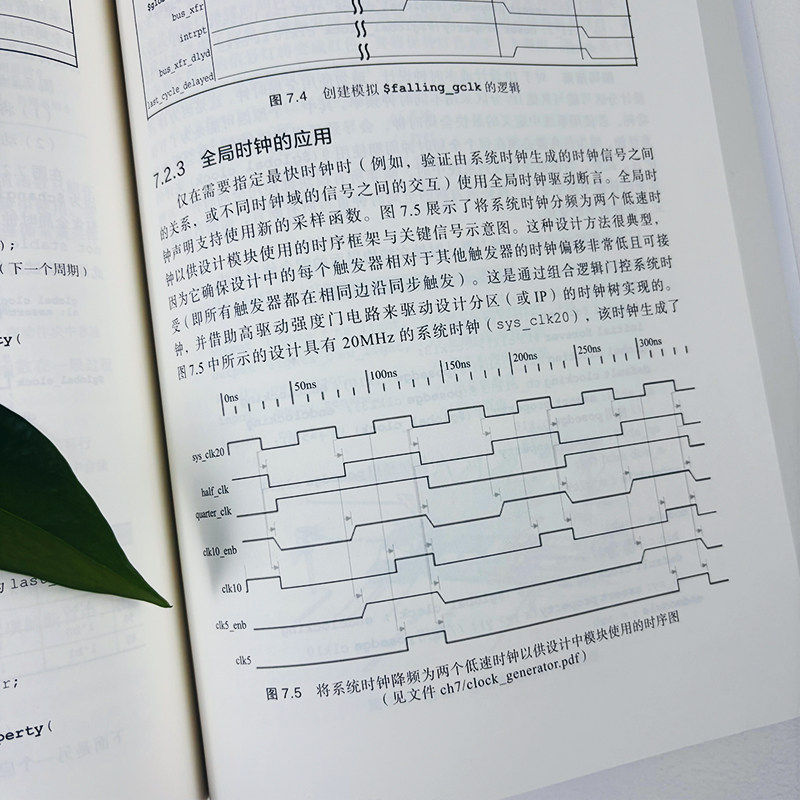 bus_xfr
intrpt
bus_xfr_dlyd
last_cycle_delayed
图 7.4 创建模拟 $falling_gclk 的逻辑
7.2.3 全局时钟的应用
仅在需要指定最快时钟时（例如，验证由系统时钟生成的时钟信号之间
的关系，或不同时钟域的信号之间的交互）使用全局时钟驱动断言。全局时
钟声明支持使用新的采样函数。图 7.5 展示了将系统时钟分频为两个低速时
钟以供设计模块使用的时序框架与关键信号示意图。这种设计方法很典型，
因为它确保设计中的每个触发器相对于其他触发器的时钟偏移非常低且可接
受（即所有触发器都在相同边沿同步触发）。这是通过组合逻辑门控系统时
钟，并借助高驱动强度门电路来驱动设计分区（或 IP）的时钟树实现的。
图 7.5 中所示的设计具有 20MHz 的系统时钟（sys_clk20），该时钟生成了
0ns 50ns 100ns 150ns 200ns 250ns 300ns
sys_clk20
half_clk
quarter_clk
clk10_enb
clk10
clk5_enb
clk5
图 7.5 将系统时钟降频为两个低速时钟以供设计中模块使用的时序图
（见文件 ch7/clock_generator.pdf）
);
（下一个周期）
(
r;
perty(